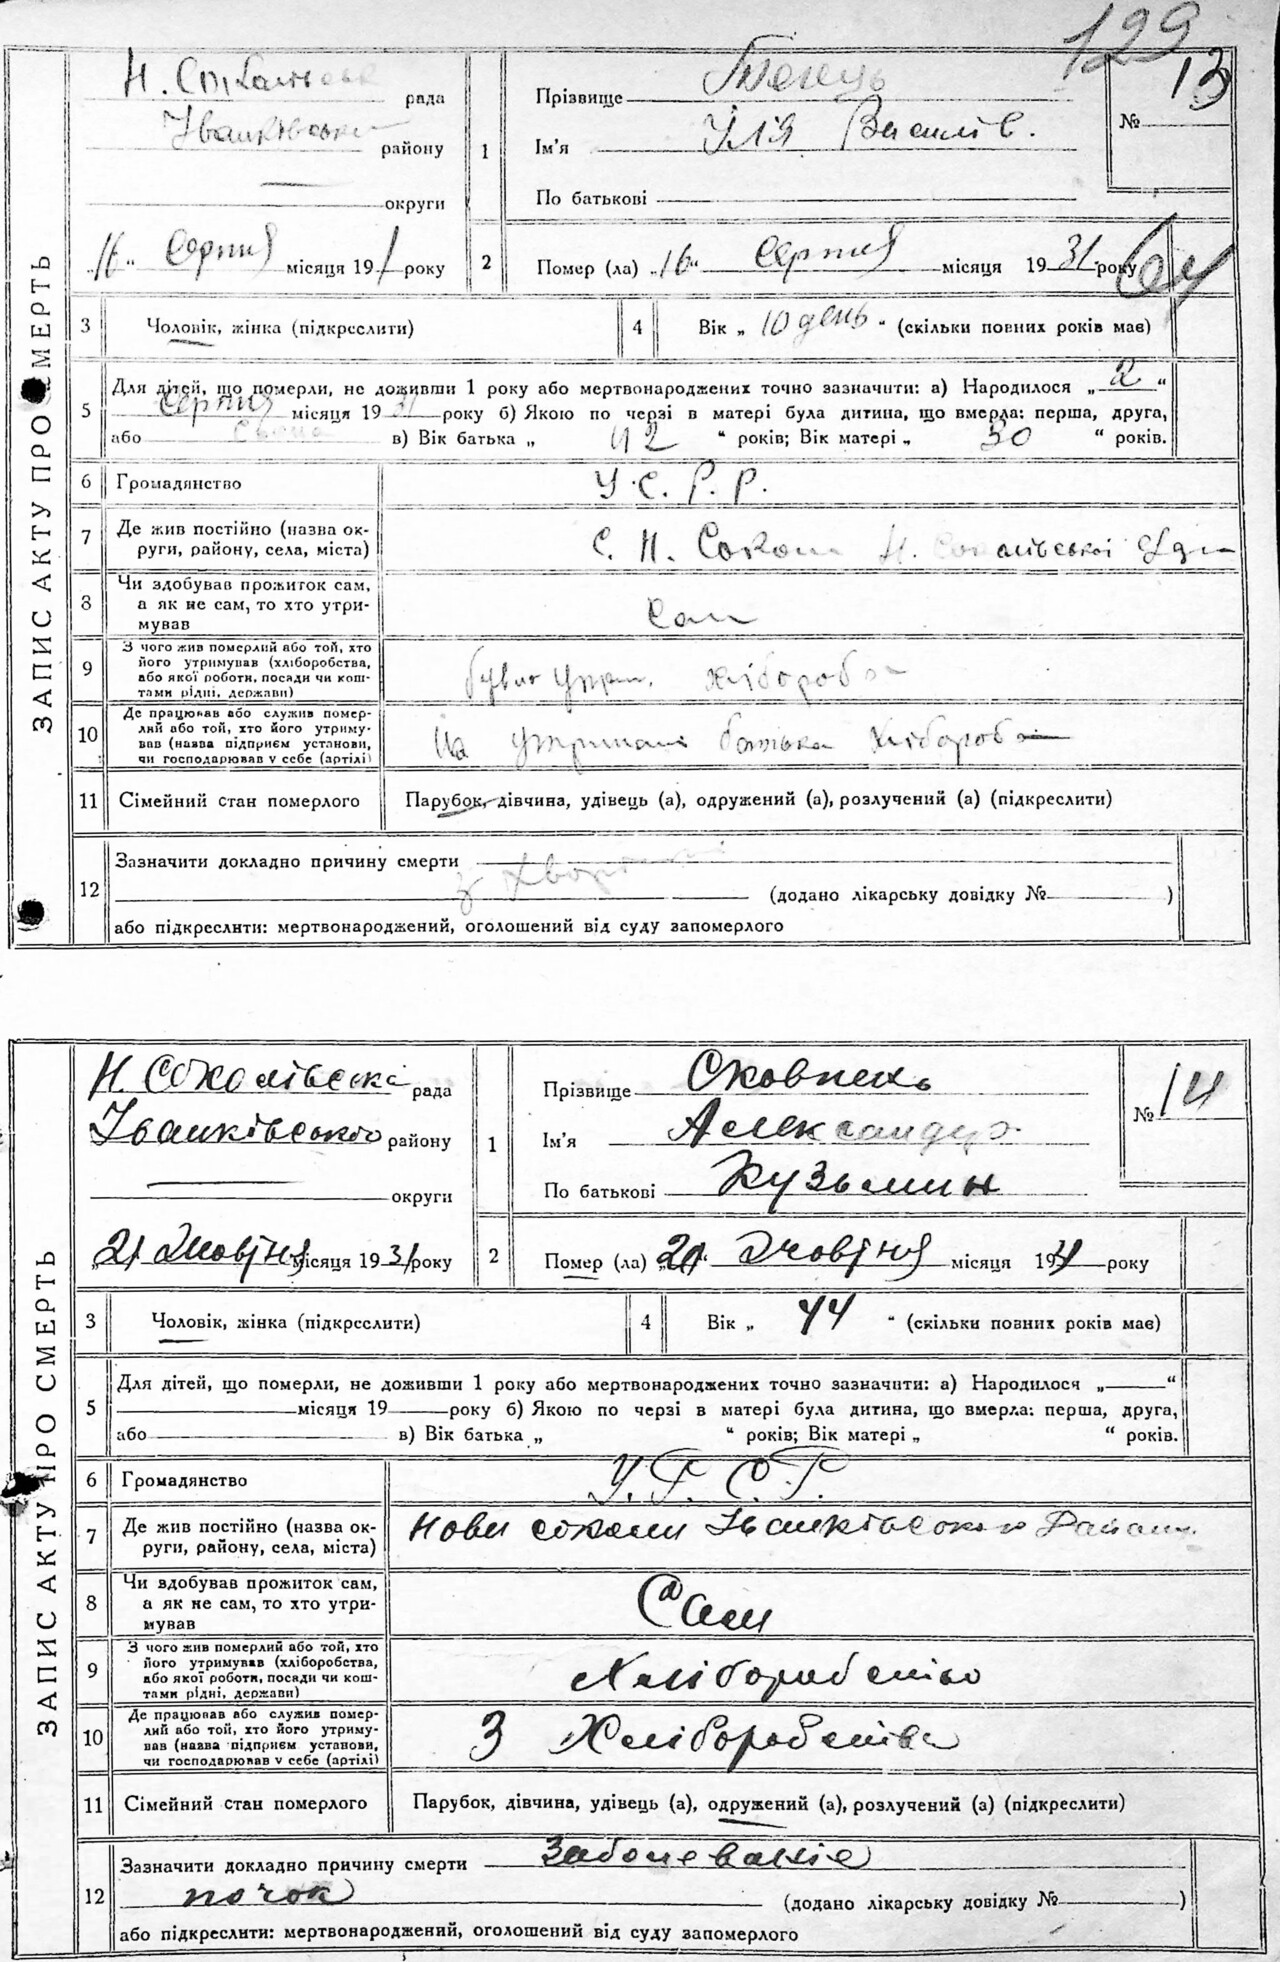 129
ЗАПИС АКТУ ПРО СМЕРТЬ
Н. Сокалівска рада
Іванківськ району
округи
„16“ Серпня місяця 191 року
1
Прізвище
Ім'я Ілія Василів.
По батькові
№ 13
2
Помер (ла) „16“ Серпня місяця 1931 року
64
3 Чоловік, жінка (підкреслити)
4 Вік „ 10 день “ (скільки повних років має)
5 Для дітей, що померли, не доживши 1 року або мертвонароджених точно зазначити: а) Народилося „2“
Серпня місяця 1931 року б) Якою по черзі в матері була дитина, що вмерла: перша, друга,
або в) Вік батька „ 42 “ років; Вік матері „ 30 “ років.
6 Громадянство У.С.Р.Р.
7 Де жив постійно (назва ок-
руги, району, села, міста) С. Н. Сокали Н. Сокалівської
8 Чи здобував прожиток сам,
а як не сам, то хто утри-
мував
Сам
9 З чого жив померлий або той, хто
його утримував (хліборобства,
або якої роботи, посади чи кош-
тами рідні, держави)
хлібороба
10 Де працював або служив помер-
лий або той, хто його утриму-
вав (назва підприєм установи,
чи господарював у себе (артілі)
На утримані батька хлібороба
11 Сімейний стан померлого Парубок, дівчина, удівець (а), одружений (а), розлучений (а) (підкреслити)
12 Зазначити докладно причину смерти
з
(додано лікарську довідку № )
або підкреслити: мертвонароджений, оголошений від суду запомерлого
ЗАПИС АКТУ ПРО СМЕРТЬ
Н. Соколівська рада
Іванківського району
округи
„21 Жовтня місяця 1931 року
1
Прізвище Сковпень
Ім'я Александр
По батькові Кузьмин
№ 14
2
Помер (ла) „20“ Жовтня місяця 1931 року
3 Чоловік, жінка (підкреслити)
4 Вік „ 44 “ (скільки повних років має)
5 Для дітей, що померли, не доживши 1 року або мертвонароджених точно зазначити: а) Народилося „ “
місяця 19 року б) Якою по черзі в матері була дитина, що вмерла: перша, друга,
або в) Вік батька „ “ років; Вік матері „ “ років.
6 Громадянство У.Р.С.Р.
7 Де жив постійно (назва ок-
руги, району, села, міста) Нови соколи Іванківського Району
8 Чи здобував прожиток сам,
а як не сам, то хто утри-
мував
Сам
9 З чого жив померлий або той, хто
його утримував (хліборобства,
або якої роботи, посади чи кош-
тами рідні, держави)
Хліборобство
10 Де працював або служив помер-
лий або той, хто його утриму-
вав (назва підприєм установи,
чи господарював у себе (артілі)
З Хліборобства
11 Сімейний стан померлого Парубок, дівчина, удівець (а), одружений (а), розлучений (а) (підкреслити)
12 Зазначити докладно причину смерти Заболеваніе
почок (додано лікарську довідку № )
або підкреслити: мертвонароджений, оголошений від суду запомерлого